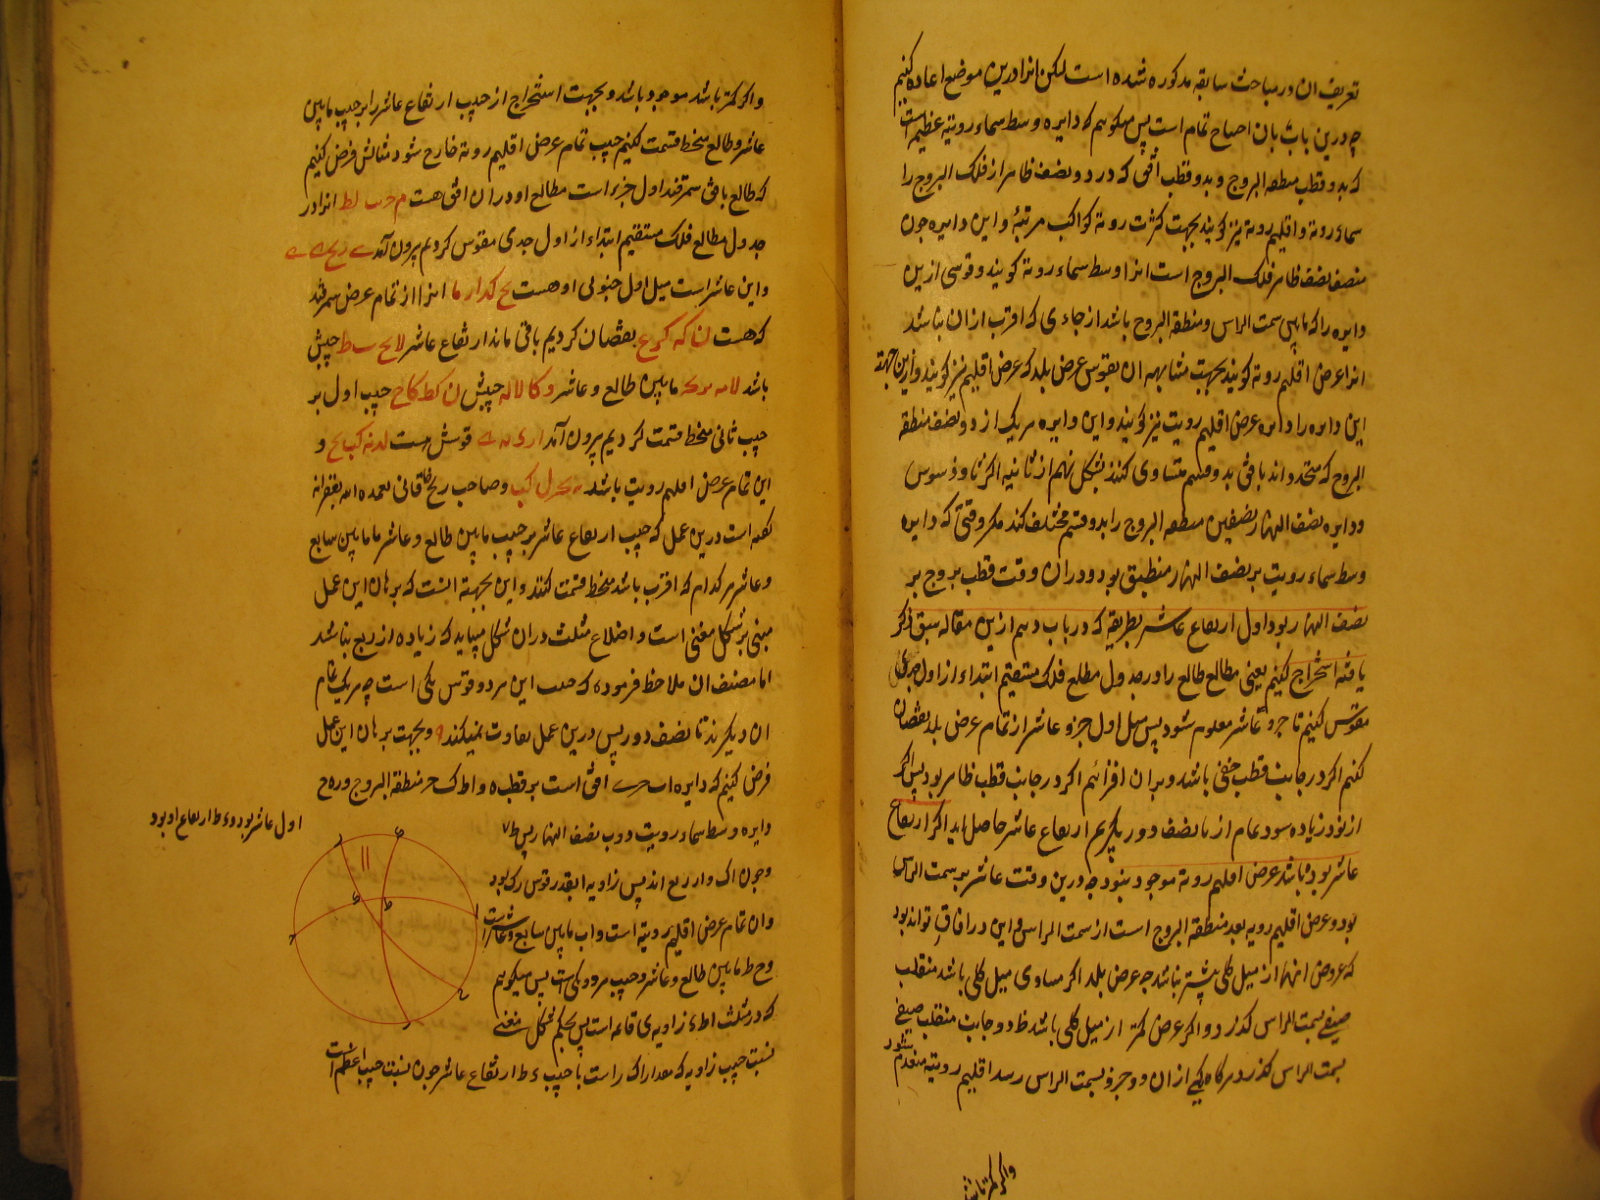 تعریف ان در مباحث سابقه مذکوره شده است لکن انرا درین موضع اعاده کنیم
چه درین باب بان احتیاج تمام است پس میکوییم که دایره وسط سماء رویته عظیمه است
که بدو قطب منطقه البروج و بدو قطب افق کذرد و نصف ظاهر از فلک البروج را
سماء رویة و اقلیم رویة نیز کویند بجهت کثرت رویة کواکب مرتبه و این دایره چون
منصف نصف ظاهر فلک البروج است انرا وسط سماء رویة کویند و قوسی ازین
دایره را که مابین سمت الراس و منطقة البروج باشد از جاءی که اقرب ازان نباشد
انرا عرض اقلیم رویة کویند بجهت مشابهه ان بقوس عرض بلد که عرض اقلیم نیز کویند و ازین جهته
این دایره را دایره عرض اقلیم رویت نیز کویند و این دایره هر یک از دو نصف منطقة
البروج که متحدد اند بافق بدو قسم متساوی کند بشکل نهم از ثانیه اکر ثاوذوسیوس
و دایره نصف النهار نصفین منطقه البروج را بدو قسم مختلف کند مکر وقتی که دایره
وسط سماء رویت بر نصف النهار منطبق بود و دران وقت قطب بروج بر
نصف النهار بود اول ارتفاع عاشر بطریقه که در باب دهم ازین مقاله سبق ذکر
یافته استخراج کنیم یعنی مطالع طالع را در جدول مطلع فلک مستقیم ابتداء از اول جدی
مقوس کنیم تا جزو عاشر معلوم شود پس میل اول جزو عاشر از تمام عرض بلد نقصان
کنیم اکر در جانب قطب خفی باشد و بران افزائیم اکر در جانب قطب ظاهر بود پس اکر
از نود زیاده شود تمام انرا تا نصف دور بکیریم ارتفاع عاشر حاصل اید اکر ارتفاع
عاشر نود باشد عرض اقلیم رویة موجود نبود چه درین وقت عاشر بر سمت الراس
بود و عرض اقلیم رویه بعد منطقة البروج است از سمت الراس و این در افاق تواند بود
که عروض انها از میل کلی بیشتر نباشد چه عرض بلد اکر مساوی میل کلی باشد منقلب
صیفی بسمت الراس کذرد و اکر عرض کمتر از میل کلی باشد دو جانب منقلب صیفی
بسمت الراس کذرد هر کاه یکی ازان دو جزو بسمت الراس رسد اقلیم رویته منعدم شود
واکر کمتر باشد
واکر کمتر باشد موجود باشد و بجهت استخراج از جیب ارتفاع عاشر را بر جیب مابین
عاشر و طالع منحط قسمت کنیم جیب تمام عرض اقلیم رویة خارج شود مثالش فرض کنیم
که طالع بافق سمرقند اول جزء است مطالع او دران افق هست انرا در
جدول مطالع فلک مستقیم ابتداء از اول جدی مقوس کردیم بیرون آمد
و این عاشر است میل اول جنوبی او هست انرا از تمام عرض سمرقند
که هست نقصان کردیم باقی ماند ارتفاع عاشر جیبش
باشد مابین طالع و عاشر جیبش جیب اول بر
جیب ثانی منحط قسمت کردیم بیرون آمد قوسش هست و
این تمام عرض اقلیم رویت باشد و صاحب زیج خاقانی تغمده الله بغفرانه
کفته است درین عمل که جیب ارتفاع عاشر بر جیب مابین طالع و عاشر یا مابین سابع
و عاشر هر کدام که اقرب باشد منحط قسمت کنند و این بجهته انست که برهان این عمل
مبنی بر شکل مغنی است و اضلاع مثلث دران شکل میباید که زیاده از ربع نباشد
اما مصنف ان ملاحظ فرموده که جیب این هر دو قوس یکی است چه هر یک تمام
ان دیکرند تا نصف دور پس درین عمل تفاوت نمیکند و بجهت برهان این عمل
فرض کنیم که دایره افق است بر قطب و منطقة البروج و
دایره وسط سماء رویت و نصف النهار پس ط
اول عاشر بود و ء ط ارتفاع او بود
و چون اک وا ر ربع اند پس زاویه ا بقدر قوس رک بود
وان تمام عرض اقلیم رویته است و اب مابین سابع و عاشر است
و ح ط مابین طالع و عاشر و جیب هر دو یکی است پس میکوییم
که در مثلث اط ء زاویه ی قائمه است پس بحکم شکل مغنی
نسبت جیب زاویه که مقدار اک راست با جیب ء ط ارتفاع عاشر چون نسبت جیب اعظم است